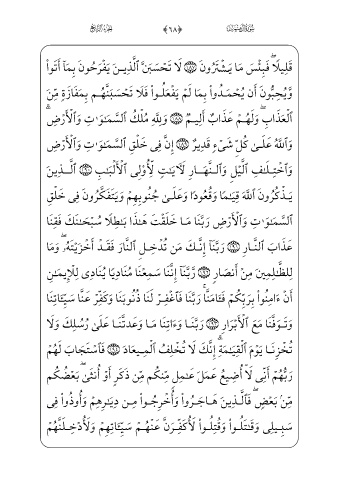 سورة آل عمران ﴿٦٨﴾ الجزء الرابع
قَلِيلًا فَبِئْسَ مَا يَشْتَرُونَ ۝ لَا تَحْسَبَنَّ الَّذِينَ يَفْرَحُونَ بِمَا أَتَوا
وَّيُحِبُّونَ أَن يُحْمَدُوا بِمَا لَمْ يَفْعَلُوا فَلَا تَحْسَبَنَّهُم بِمَفَازَةٍ مِّنَ
الْعَذَابِ وَلَهُمْ عَذَابٌ أَلِيمٌ ۝ وَلِلَّهِ مُلْكُ السَّمَٰوَٰتِ وَالْأَرْضِ
وَاللَّهُ عَلَىٰ كُلِّ شَىْءٍ قَدِيرٌ ۝ إِنَّ فِى خَلْقِ السَّمَٰوَٰتِ وَالْأَرْضِ
وَاخْتِلَٰفِ الَّيْلِ وَالنَّهَارِ لَآيَٰتٍ لِّأُولِى الْأَلْبَٰبِ ۝ الَّذِينَ
يَذْكُرُونَ اللَّهَ قِيَٰمًا وَقُعُودًا وَعَلَىٰ جُنُوبِهِمْ وَيَتَفَكَّرُونَ فِى خَلْقِ
السَّمَٰوَٰتِ وَالْأَرْضِ رَبَّنَا مَا خَلَقْتَ هَٰذَا بَٰطِلًا سُبْحَٰنَكَ فَقِنَا
عَذَابَ النَّارِ ۝ رَبَّنَا إِنَّكَ مَن تُدْخِلِ النَّارَ فَقَدْ أَخْزَيْتَهُ وَمَا
لِلظَّٰلِمِينَ مِنْ أَنصَارٍ ۝ رَّبَّنَا إِنَّنَا سَمِعْنَا مُنَادِيًا يُنَادِى لِلْإِيمَٰنِ
أَنْ ءَامِنُوا بِرَبِّكُمْ فَـَٔامَنَّا رَبَّنَا فَاغْفِرْ لَنَا ذُنُوبَنَا وَكَفِّرْ عَنَّا سَيِّـَٔاتِنَا
وَتَوَفَّنَا مَعَ الْأَبْرَارِ ۝ رَبَّنَا وَءَاتِنَا مَا وَعَدتَّنَا عَلَىٰ رُسُلِكَ وَلَا
تُخْزِنَا يَوْمَ الْقِيَٰمَةِ إِنَّكَ لَا تُخْلِفُ الْمِيعَادَ ۝ فَاسْتَجَابَ لَهُمْ
رَبُّهُمْ أَنِّى لَا أُضِيعُ عَمَلَ عَٰمِلٍ مِّنكُم مِّن ذَكَرٍ أَوْ أُنثَىٰ بَعْضُكُم
مِّنۢ بَعْضٍ فَالَّذِينَ هَاجَرُوا وَأُخْرِجُوا مِن دِيَٰرِهِمْ وَأُوذُوا فِى
سَبِيلِى وَقَٰتَلُوا وَقُتِلُوا لَأُكَفِّرَنَّ عَنْهُمْ سَيِّـَٔاتِهِمْ وَلَأُدْخِلَنَّهُمْ